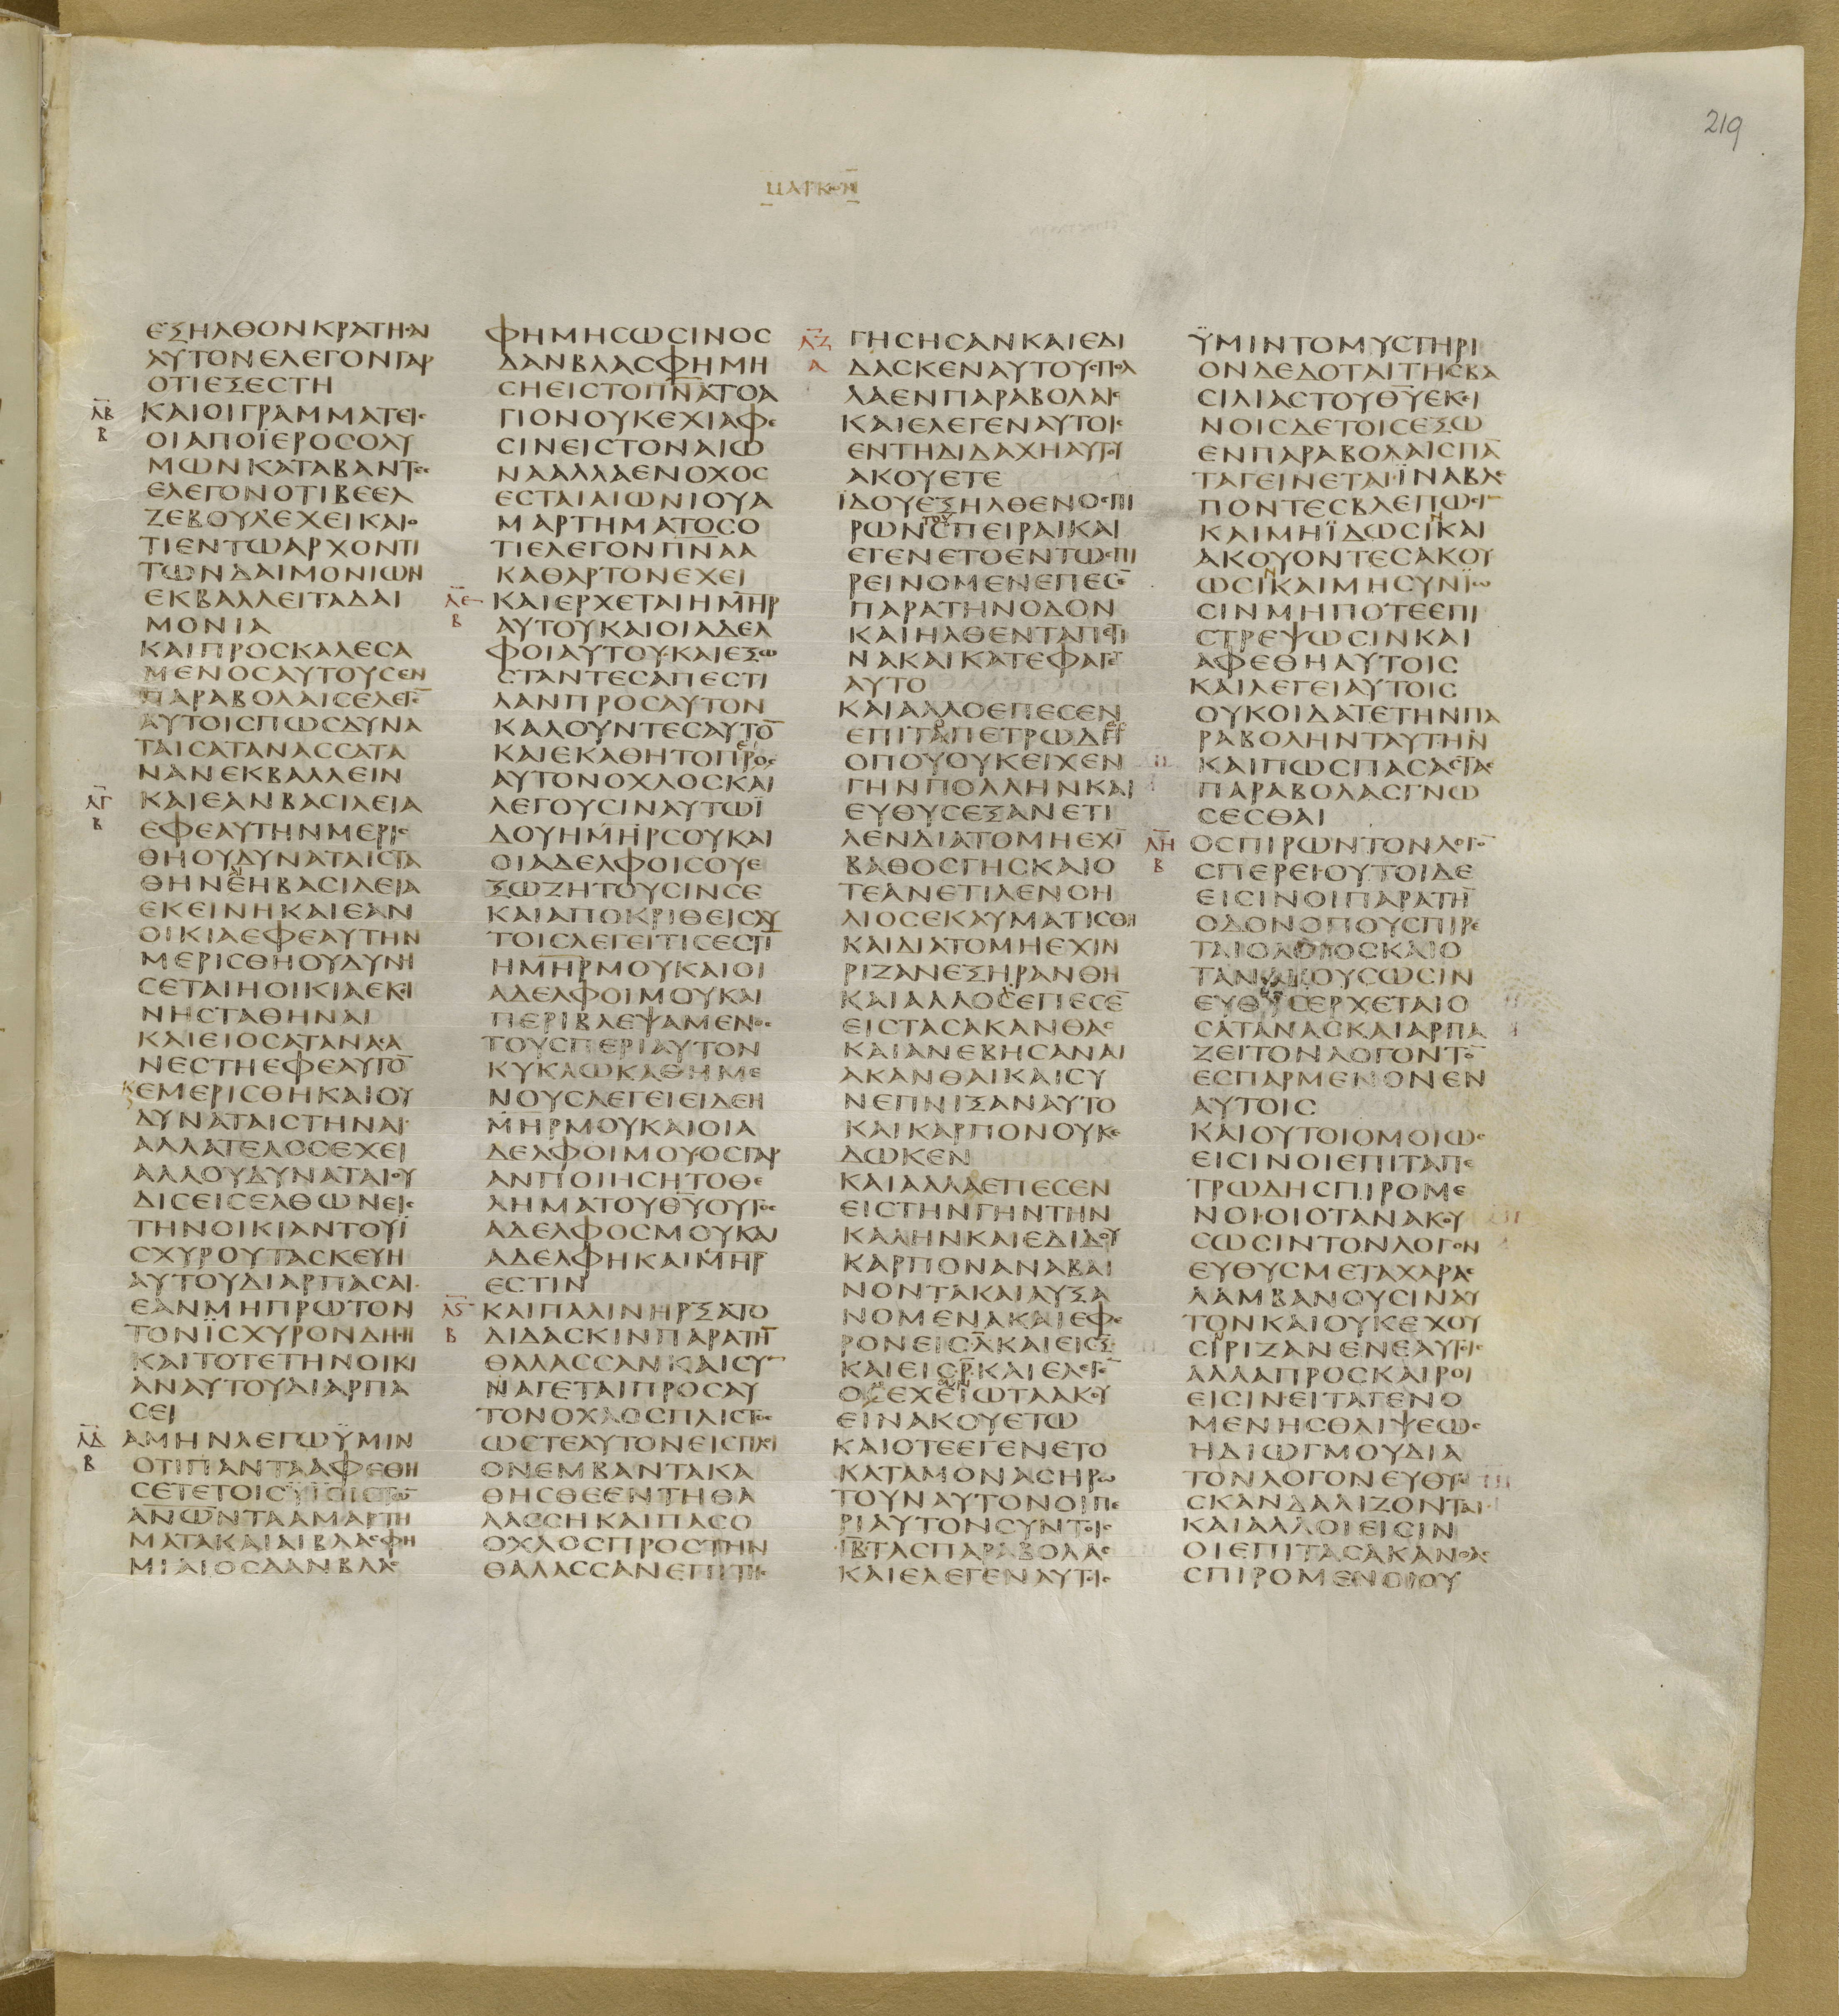 219
ΜΑΡΚΟΝ
ΕΞΗΛΘΟΝΚΡΑΤΗϹΑΙ
ΑΥΤΟΝΕΛΕΓΟΝΓΑΡ
ΟΤΙΕΞΕϹΤΗ
ΛΒ
Β
ΚΑΙΟΙΓΡΑΜΜΑΤΕΙϹ
ΟΙΑΠΟΪΕΡΟϹΟΛΥ
ΜΩΝΚΑΤΑΒΑΝΤΕϹ
ΕΛΕΓΟΝΟΤΙΒΕΕΛ
ΖΕΒΟΥΛΕΧΕΙΚΑΙΟ
ΤΙΕΝΤΩΑΡΧΟΝΤΙ
ΤΩΝΔΑΙΜΟΝΙΩΝ
ΕΚΒΑΛΛΕΙΤΑΔΑΙ
ΜΟΝΙΑ
ΚΑΙΠΡΟϹΚΑΛΕϹΑ
ΜΕΝΟϹΑΥΤΟΥϹΕΝ
ΠΑΡΑΒΟΛΑΙϹΕΛΕΓΕ̅
ΑΥΤΟΙϹΠΩϹΔΥΝΑ
ΤΑΙϹΑΤΑΝΑϹϹΑΤΑ
ΝΑΝΕΚΒΑΛΛΕΙΝ
ΛΓ
Β
ΚΑΙΕΑΝΒΑϹΙΛΕΙΑ
ΕΦΕΑΥΤΗΝΜΕΡΙϹ
ΘΗΟΥΔΥΝΑΤΑΙϹΤΑ
ΘΗΝΕΗΒΑϹΙΛΕΙΑ
ΕΚΕΙΝΗΚΑΙΕΑΝ
ΟΙΚΙΑΕΦΕΑΥΤΗΝ
ΜΕΡΙϹΘΗΟΥΔΥΝΗ
ϹΕΤΑΙΗΟΙΚΙΑΕΚΕΙ
ΝΗϹΤΑΘΗΝΑΙ
ΚΑΙΕΙΟϹΑΤΑΝΑϹΑ
ΝΕϹΤΗΕΦΕΑΥΤΟ̅
ΕΜΕΡΙϹΘΗΚΑΙΟΥ
ΔΥΝΑΤΑΙϹΤΗΝΑΙ
ΑΛΛΑΤΕΛΟϹΕΧΕΙ
ΑΛΛΟΥΔΥΝΑΤΑΙΟΥ
ΔΙϹΕΙϹΕΛΘΩΝΕΙϹ
ΤΗΝΟΙΚΙΑΝΤΟΥΪ
ϹΧΥΡΟΥΤΑϹΚΕΥΗ
ΑΥΤΟΥΔΙΑΡΠΑϹΑΙ
ΕΑΝΜΗΠΡΩΤΟΝ
ΤΟΝΪϹΧΥΡΟΝΔΗϹΗ
ΚΑΙΤΟΤΕΤΗΝΟΙΚΙ
ΑΝΑΥΤΟΥΔΙΑΡΠΑ
ϹΕΙ
ΛΔ
Β
ΑΜΗΝΛΕΓΩΫΜΙΝ
ΟΤΙΠΑΝΤΑΑΦΕΘΗ
ϹΕΤΕΤΟΙϹΥΪΟΙϹΤΩ̅
ΑΝΩΝΤΑΑΜΑΡΤΗ
ΜΑΤΑΚΑΙΑΙΒΛΑϹΦΗ
ΜΙΑΙΟϹΔΑΝΒΛΑϹ
ΦΗΜΗϹΩϹΙΝΟϹ
ΔΑΝΒΛΑϹΦΗΜΗ
ϹΗΕΙϹΤΟΠΝ̅ΑΤΟΑ
ΓΙΟΝΟΥΚΕΧΙΑΦΕ
ϹΙΝΕΙϹΤΟΝΑΙΩ
ΝΑΑΛΛΑΕΝΟΧΟϹ
ΕϹΤΑΙΑΙΩΝΙΟΥΑ
ΜΑΡΤΗΜΑΤΟϹΟ
ΤΙΕΛΕΓΟΝΠΝ̅ΑΑ
ΚΑΘΑΡΤΟΝΕΧΕΙ
ΛΕ
Β
ΚΑΙΕΡΧΕΤΑΙΗΜ̅Η̅Ρ
ΑΥΤΟΥΚΑΙΟΙΑΔΕΛ
ΦΟΙΑΥΤΟΥΚΑΙΕΞΩ
ϹΤΑΝΤΕϹΑΠΕϹΤΙ
ΛΑΝΠΡΟϹΑΥΤΟΝ
ΚΑΛΟΥΝΤΕϹΑΥΤΟ̅
ΚΑΙΕΚΑΘΗΤΟΠΡΟϹ
ΑΥΤΟΝΟΧΛΟϹΚΑΙ
ΛΕΓΟΥϹΙΝΑΥΤΩΪ
ΔΟΥΗΜ̅Η̅ΡϹΟΥΚΑΙ
ΟΙΑΔΕΛΦΟΙϹΟΥΕ
ΞΩΖΗΤΟΥϹΙΝϹΕ
ΚΑΙΑΠΟΚΡΙΘΕΙϹΑΥ
ΤΟΙϹΛΕΓΕΙΤΙϹΕϹΤΙ
ΗΜ̅Η̅ΡΜΟΥΚΑΙΟΙ
ΑΔΕΛΦΟΙΜΟΥΚΑΙ
ΠΕΡΙΒΛΕΨΑΜΕΝΟϹ
ΤΟΥϹΠΕΡΙΑΥΤΟΝ
ΚΥΚΛΩΚΑΘΗΜΕ
ΝΟΥϹΛΕΓΕΙΕΙΔΕΗ
Μ̅Η̅ΡΜΟΥΚΑΙΟΙΑ
ΔΕΛΦΟΙΜΟΥΟϹΓΑΡ
ΑΝΠΟΙΗϹΗΤΟΘΕ
ΛΗΜΑΤΟΥΘ̅Υ̅ΟΥΤΟϹ
ΑΔΕΛΦΟϹΜΟΥΚΑΙ
ΑΔΕΛΦΗΚΑΙΜ̅Η̅Ρ
ΕϹΤΙΝ
ΛϚ
Β
ΚΑΙΠΑΛΙΝΗΡΞΑΤΟ
ΔΙΔΑϹΚΙΝΠΑΡΑΤΗ̅
ΘΑΛΑϹϹΑΝΚΑΙϹΥ
ΝΑΓΕΤΑΙΠΡΟϹΑΥ
ΤΟΝΟΧΛΟϹΠΛΙϹΤΟϹ
ΩϹΤΕΑΥΤΟΝΕΙϹΠΛΟΙ
ΟΝΕΜΒΑΝΤΑΚΑ
ΘΗϹΘΕΕΝΤΗΘΑ
ΛΑϹϹΗΚΑΙΠΑϹΟ
ΟΧΛΟϹΠΡΟϹΤΗΝ
ΘΑΛΑϹϹΑΝΕΠΙΤΗϹ
ΛΖ
Α
ΓΗϹΗϹΑΝΚΑΙΕΔΙ
ΔΑϹΚΕΝΑΥΤΟΥϹΠΟΛ
ΛΑΕΝΠΑΡΑΒΟΛΑΙϹ
ΚΑΙΕΛΕΓΕΝΑΥΤΟΙϹ
ΕΝΤΗΔΙΔΑΧΗΑΥΤΟΥ
ΑΚΟΥΕΤΕ
ΪΔΟΥΕΞΗΛΘΕΝΟϹΠΙ
ΡΩΝϹΠΕΙΡΑΙΚΑΙ
ΕΓΕΝΕΤΟΕΝΤΩϹΠΙ
ΡΕΙΝΟΜΕΝΕΠΕϹΕ̅
ΠΑΡΑΤΗΝΟΔΟΝ
ΚΑΙΗΛΘΕΝΤΑΠΕΤΙ
ΝΑΚΑΙΚΑΤΕΦΑΓΕ̅
ΑΥΤΟ
ΚΑΙΑΛΛΟΕΠΕϹΕΝ
ΕΠΙΤΑΠΕΤΡΩΔΗ
ΟΠΟΥΟΥΚΕΙΧΕΝ
ΓΗΝΠΟΛΛΗΝΚΑΙ
ΕΥΘΥϹΕΞΑΝΕΤΙ
ΛΕΝΔΙΑΤΟΜΗΕΧΙ̅
ΒΑΘΟϹΓΗϹΚΑΙΟ
ΤΕΑΝΕΤΙΛΕΝΟΗ
ΛΙΟϹΕΚΑΥΜΑΤΙϹΘΗ
ΚΑΙΔΙΑΤΟΜΗΕΧΙΝ
ΡΙΖΑΝΕΞΗΡΑΝΘΗ
ΚΑΙΑΛΛΟϹΕΠΕϹΕ̅
ΕΙϹΤΑϹΑΚΑΝΘΑϹ
ΚΑΙΑΝΕΒΗϹΑΝΑΙ
ΑΚΑΝΘΑΙΚΑΙϹΥ
ΝΕΠΝΙΞΑΝΑΥΤΟ
ΚΑΙΚΑΡΠΟΝΟΥΚΕ
ΔΩΚΕΝ
ΚΑΙΑΛΛΑΕΠΕϹΕΝ
ΕΙϹΤΗΝΓΗΝΤΗΝ
ΚΑΛΗΝΚΑΙΕΔΙΔΟΥ
ΚΑΡΠΟΝΑΝΑΒΑΙ
ΝΟΝΤΑΚΑΙΑΥΞΑ
ΝΟΜΕΝΑΚΑΙΕΦΕ
ΡΟΝΕΙϹΛ̅ΚΑΙΕΙϹΞ̅
ΚΑΙΕΙϹΡ̅ΚΑΙΕΛΕΓΕ̅
ΟϹΕΧΕΙΩΤΑΑΚΟΥ
ΕΙΝΑΚΟΥΕΤΩ
ΚΑΙΟΤΕΕΓΕΝΕΤΟ
ΚΑΤΑΜΟΝΑϹΗΡΩ
ΤΟΥΝΑΥΤΟΝΟΙΠΕ
ΡΙΑΥΤΟΝϹΥΝΤΟΙϹ
Ι̅Β̅ΤΑϹΠΑΡΑΒΟΛΑϹ
ΚΑΙΕΛΕΓΕΝΑΥΤΟΙϹ
ΫΜΙΝΤΟΜΥϹΤΗΡΙ
ΟΝΔΕΔΟΤΑΙΤΗϹΒΑ
ϹΙΛΙΑϹΤΟΥΘ̅Υ̅ΕΚΕΙ
ΝΟΙϹΔΕΤΟΙϹΕΞΩ
ΕΝΠΑΡΑΒΟΛΑΙϹΠΑ̅
ΤΑΓΕΙΝΕΤΑΙΪΝΑΒΛΕ
ΠΟΝΤΕϹΒΛΕΠΩϹΙ̅
ΚΑΙΜΗΪΔΩϹΙΚΑΙ
ΑΚΟΥΟΝΤΕϹΑΚΟΥ
ΩϹΙΚΑΙΜΗϹΥΝΪΩ
ϹΙΝΜΗΠΟΤΕΕΠΙ
ϹΤΡΕΨΩϹΙΝΚΑΙ
ΑΦΕΘΗΑΥΤΟΙϹ
ΚΑΙΛΕΓΕΙΑΥΤΟΙϹ
ΟΥΚΟΙΔΑΤΕΤΗΝΠΑ
ΡΑΒΟΛΗΝΤΑΥΤΗΝ
ΚΑΙΠΩϹΠΑϹΑϹΤΑϹ
ΠΑΡΑΒΟΛΑϹΓΝΩ
ϹΕϹΘΑΙ
ΛΗ
Β
ΟϹΠΙΡΩΝΤΟΝΛΟΓΟ̅
ϹΠΕΡΕΙΟΥΤΟΙΔΕ
ΕΙϹΙΝΟΙΠΑΡΑΤΗ̅
ΟΔΟΝΟΠΟΥϹΠΙΡΕ
ΤΑΙΟΛΟΓΟϹΚΑΙΟ
ΤΑΝΑΚΟΥϹΩϹΙΝ
ΕΥΘΥϹΕΡΧΕΤΑΙΟ
ϹΑΤΑΝΑϹΚΑΙΑΡΠΑ
ΖΕΙΤΟΝΛΟΓΟΝΤΟ̅
ΕϹΠΑΡΜΕΝΟΝΕΝ
ΑΥΤΟΙϹ
ΚΑΙΟΥΤΟΙΟΜΟΙΩϹ
ΕΙϹΙΝΟΙΕΠΙΤΑΠΕ
ΤΡΩΔΗϹΠΙΡΟΜΕ
ΝΟΙΟΙΟΤΑΝΑΚΟΥ
ϹΩϹΙΝΤΟΝΛΟΓΟΝ
ΕΥΘΥϹΜΕΤΑΧΑΡΑϹ
ΛΑΜΒΑΝΟΥϹΙΝΑΥ
ΤΟΝΚΑΙΟΥΚΕΧΟΥ
ϹΙΡΙΖΑΝΕΝΕΑΥΤΟΙϹ
ΑΛΛΑΠΡΟϹΚΑΙΡΟΙ
ΕΙϹΙΝΕΙΤΑΓΕΝΟ
ΜΕΝΗϹΘΛΙΨΕΩϹ
ΗΔΙΩΓΜΟΥΔΙΑ
ΤΟΝΛΟΓΟΝΕΥΘΥϹ
ϹΚΑΝΔΑΛΙΖΟΝΤΑΙ
ΚΑΙΑΛΛΟΙΕΙϹΙΝ
ΟΙΕΠΙΤΑϹΑΚΑΝΘΑϹ
ϹΠΙΡΟΜΕΝΟΙΟΥ